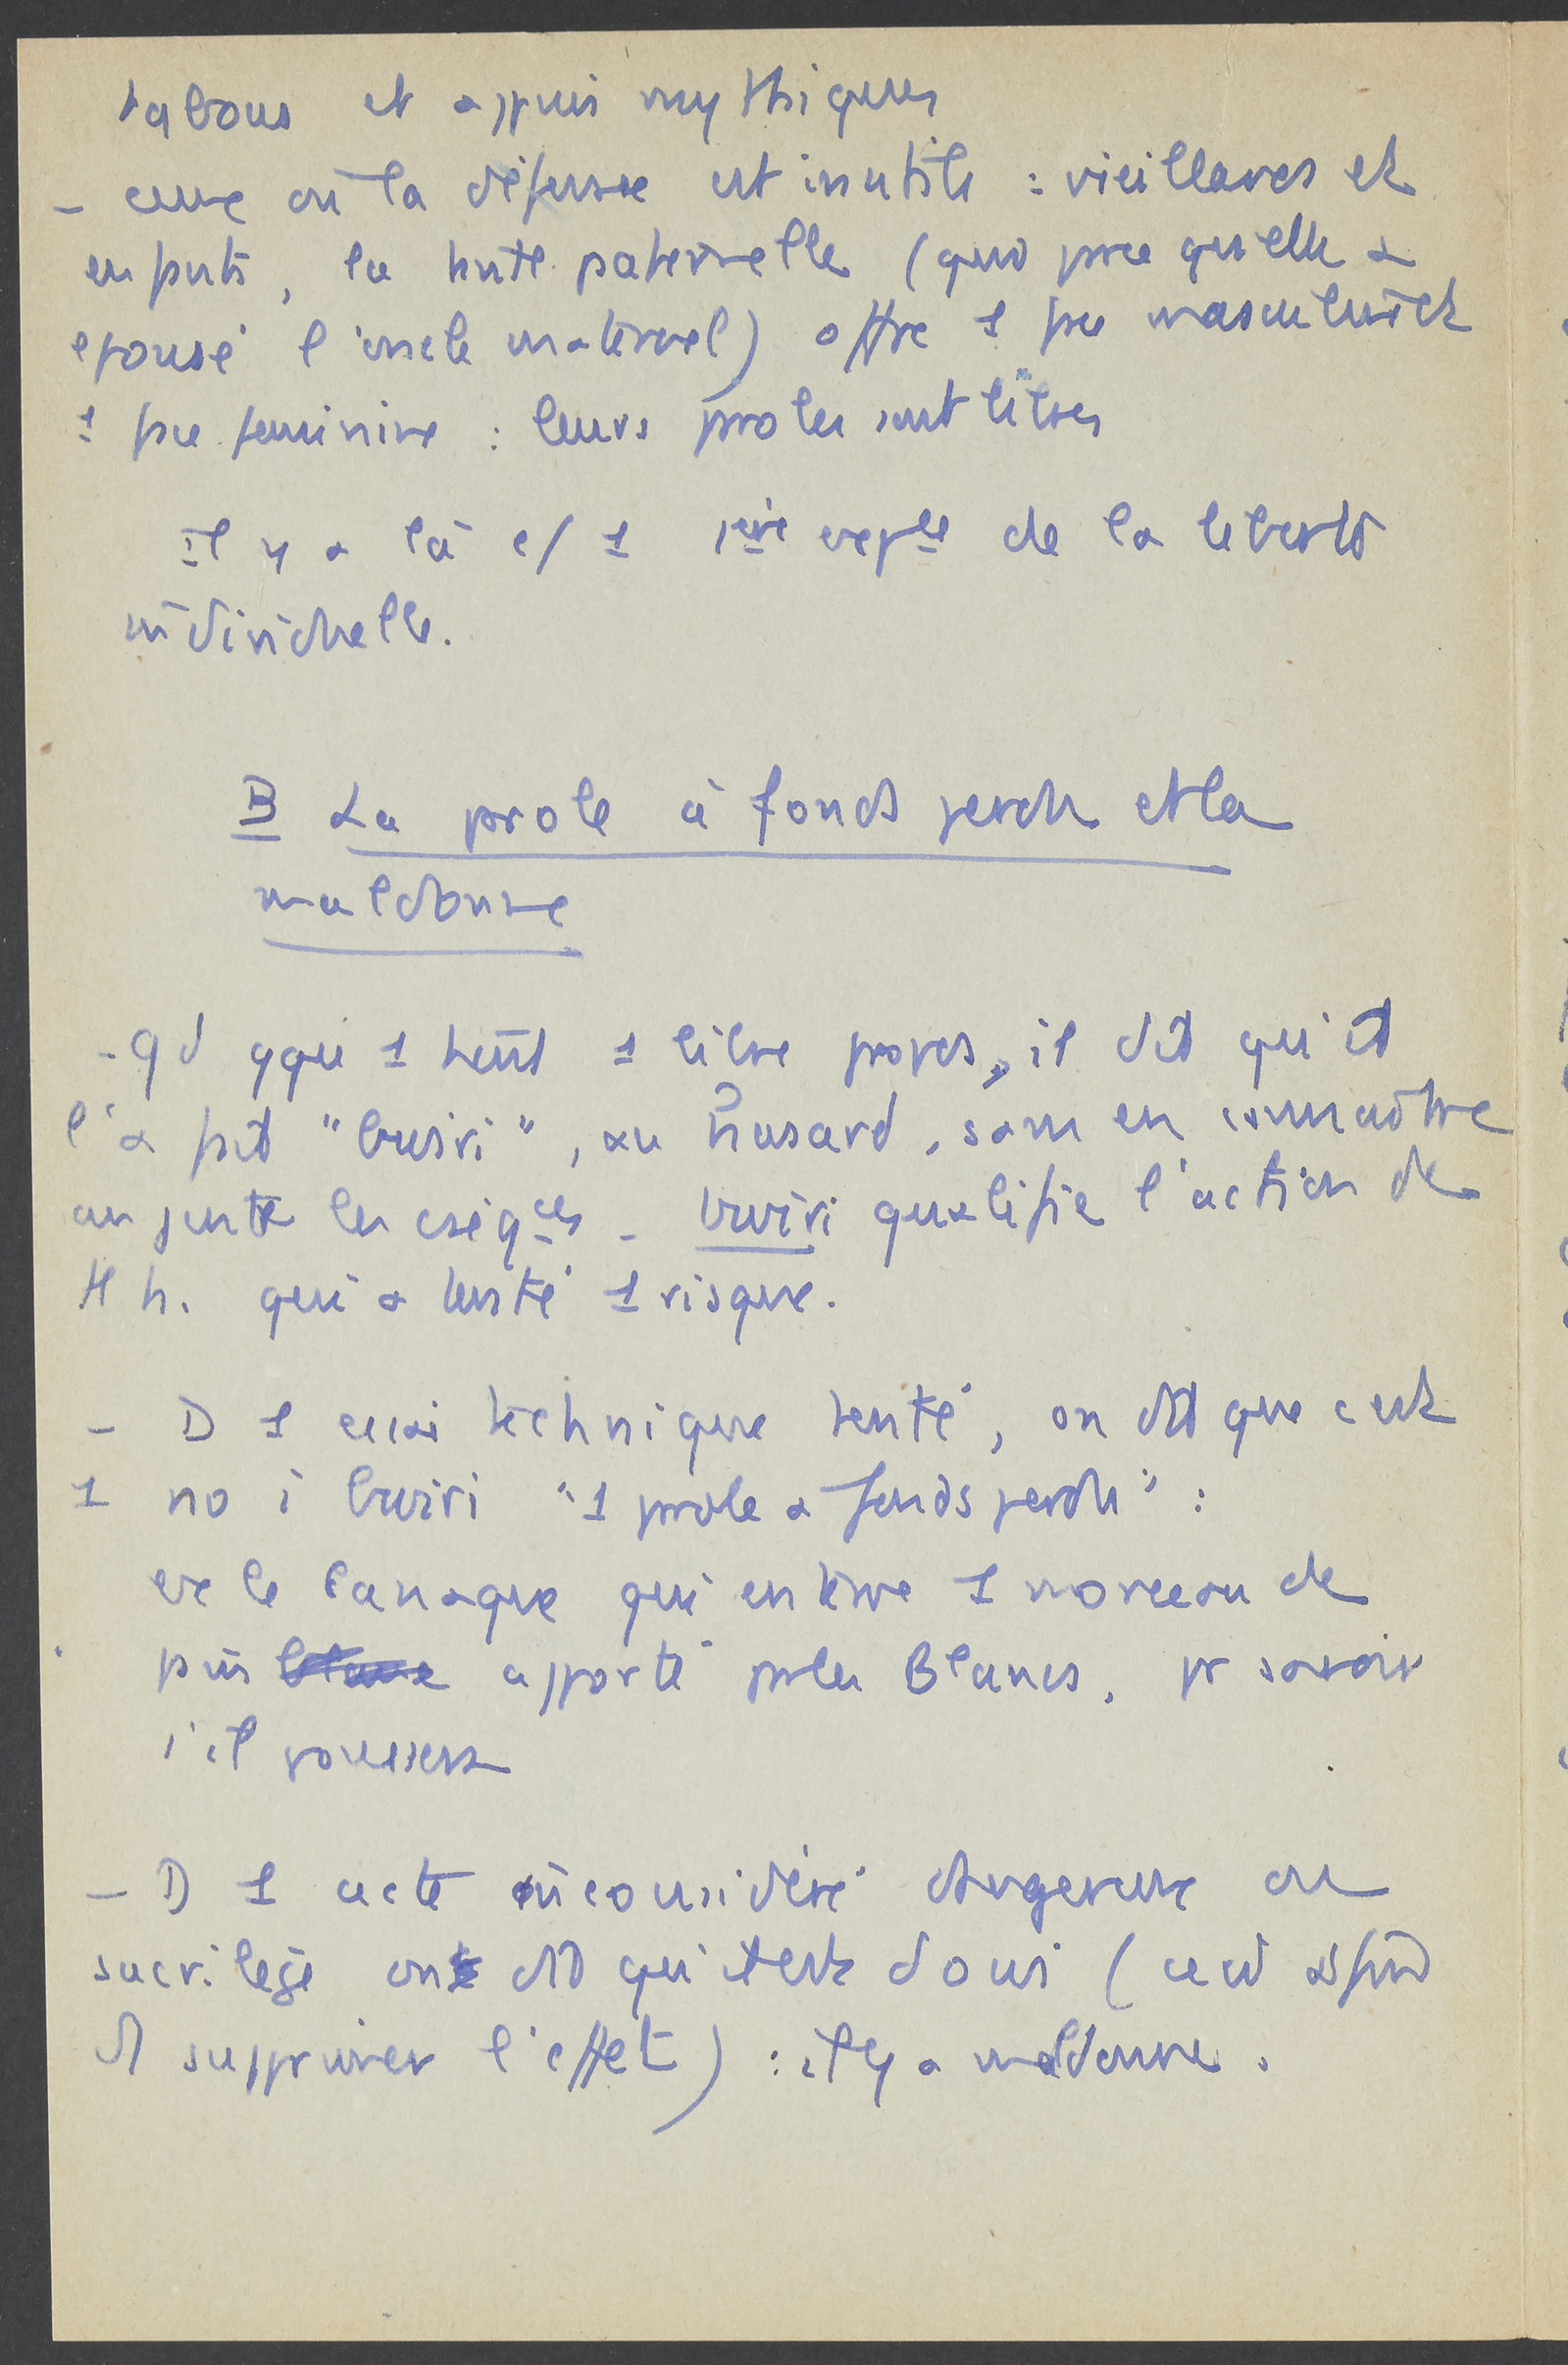 tabous et appuis mythiques
- ceux où la défense est inutile : vieillards et
enfants, la tante paternelle (quoi parce qu'elle a
épousé l'oncle maternel) offre 1 face masculine et
1 face féminine : leurs paroles sont libres
Il y a là c/ 1 1ère de la liberté
individuelle.
B La parole à fonds perdu et la
maldonne
- Qd qqu 1 tient 1 libre propos, il dit qu'il
l'a fait "buiri", au hasard, sans en connaître
au juste les cséqces - buiri qualifie l'action de
tt h. qui a tenté 1 risque.
- D 1 essai technique tenté, on dit que c'est
1 no i buiri "1 parole à fonds perdu" :
ex le canaque qui enterre 1 morceau de
pain apporté par les Blancs, pr savoir
s'il poussera
- D 1 acte inconsidéré dangereux ou
sacrilège on dit qu'il est doui (ceci afin
d supprimer l'effet) : il y a maldonne.